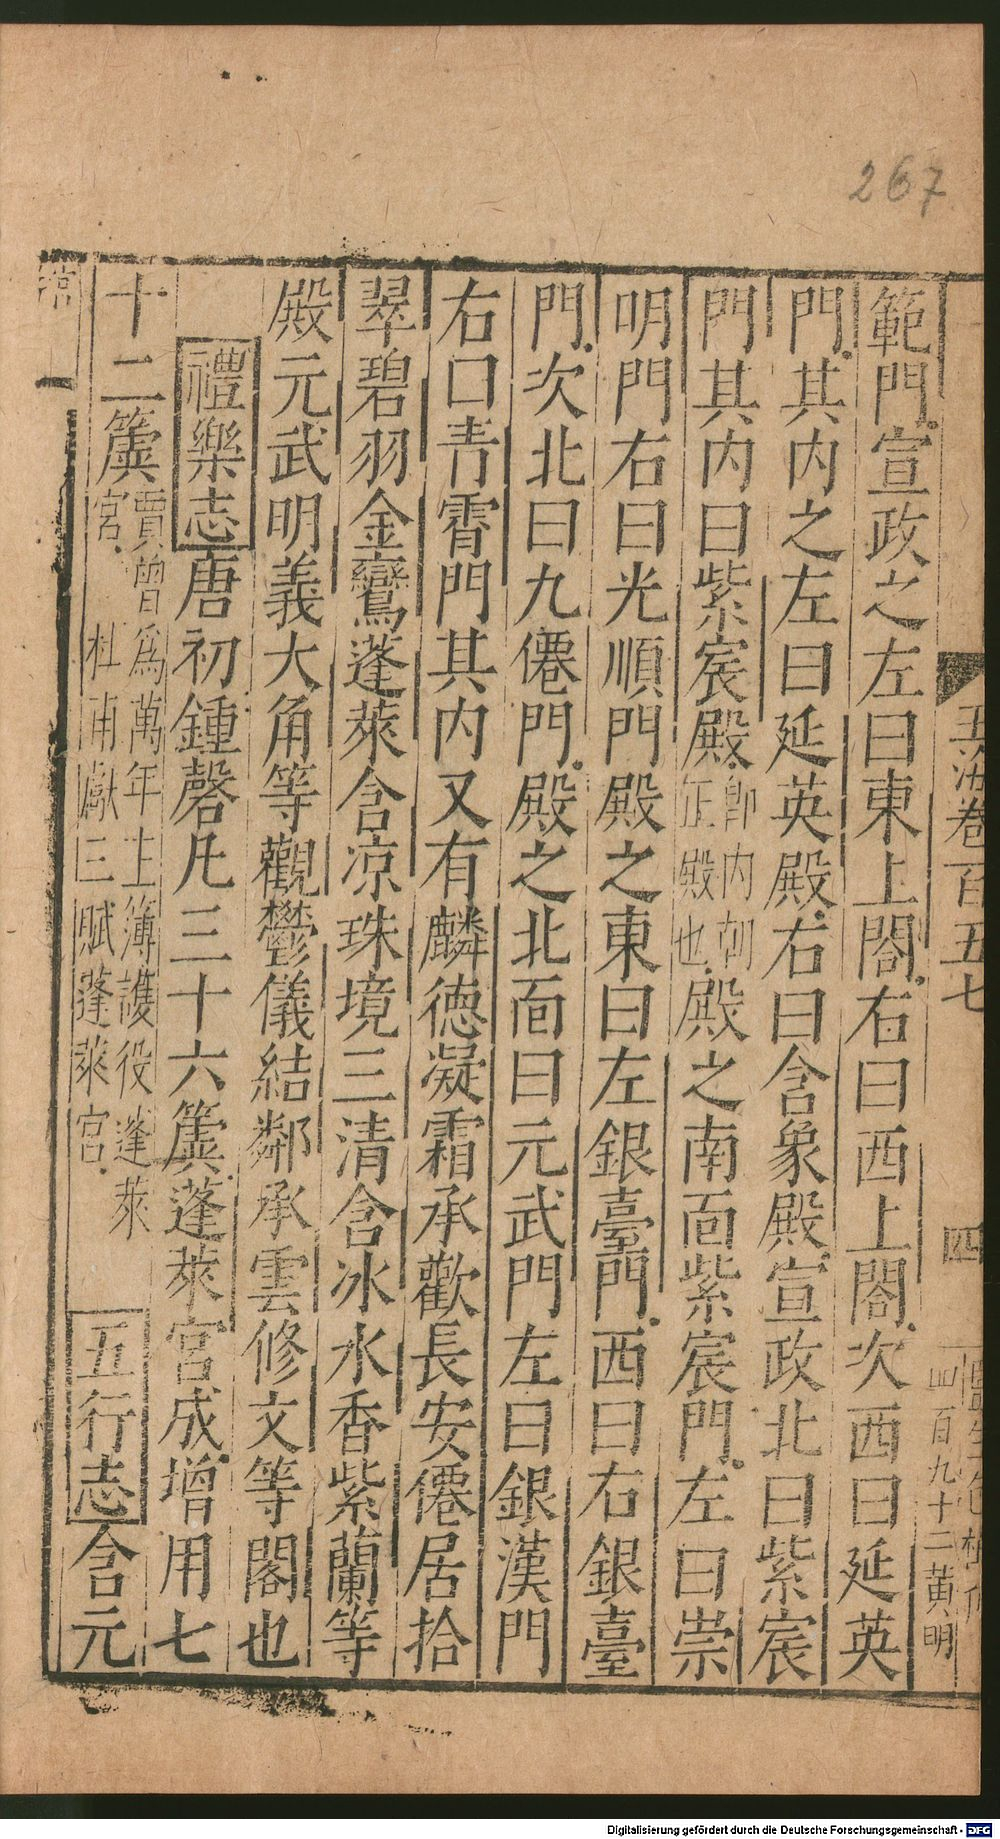 267
玉海卷百五七
四
四百九十二黄明
範門宣政之左曰東上閤右曰西上閤次西曰延英
門其内之左曰延英殿右曰含象殿宣政北曰紫宸
門其内曰紫宸殿即内朝正殿也殿之南面紫宸門左曰崇
明門右曰光順門殿之東曰左銀臺門西曰右銀臺
門次北曰九僊門殿之北面曰元武門左曰銀漢門
右曰青霄門其内又有麟德凝霜承歡長安僊居拾
翠碧羽金鸞蓬萊含凉珠境三清含冰水香紫蘭等
殿元武明義大角等觀鬱儀結鄰承雲修文等閣也
禮樂志唐初鍾磬凡三十六簴蓬萊宮成增用七
十二簴賈曾爲萬年主簿護役蓬萊宮杜甫獻三賦蓬萊宮五行志含元
Digitalisierung gefördert durch die Deutsche Forschungsgemeinschaft - DFG